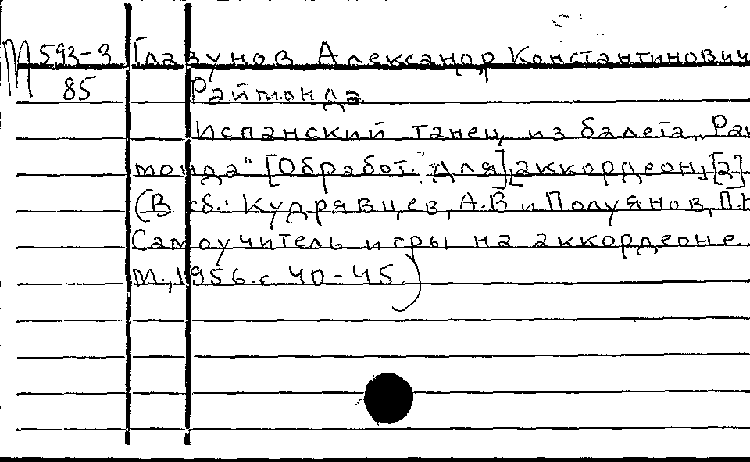 М 593-3 Глазунов Александр Константинович
85 Раймонда
Испанский танец из балета „Рай
монда" [Обработ. для] аккордеон, [2].
(В сб.: Кудрявцев, А.В и Полуянов, П.
Самоучитель игры на аккордеоне.
М., 1956. с 40-45.)